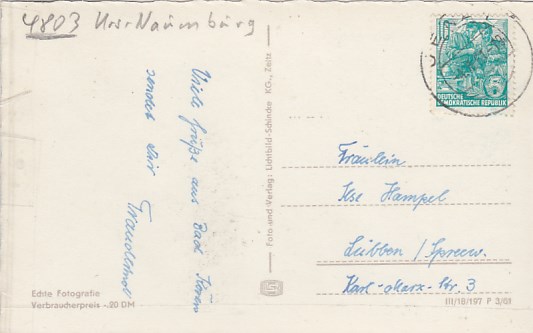 4803 Krs. Naumburg
Viele Grüße aus Bad Kösen
sendet dir
Traudemal
Foto und Verlag: Lichtbild-Schincke KG., Zeitz
DEUTSCHE
DEMOKRATISCHE REPUBLIK
5
Fräulein
Ilse Hampel
Lübben / Spreew.
Karl-Marx-Str. 3
Echte Fotografie
Verbraucherpreis -.20 DM
III/18/197 P 3/61